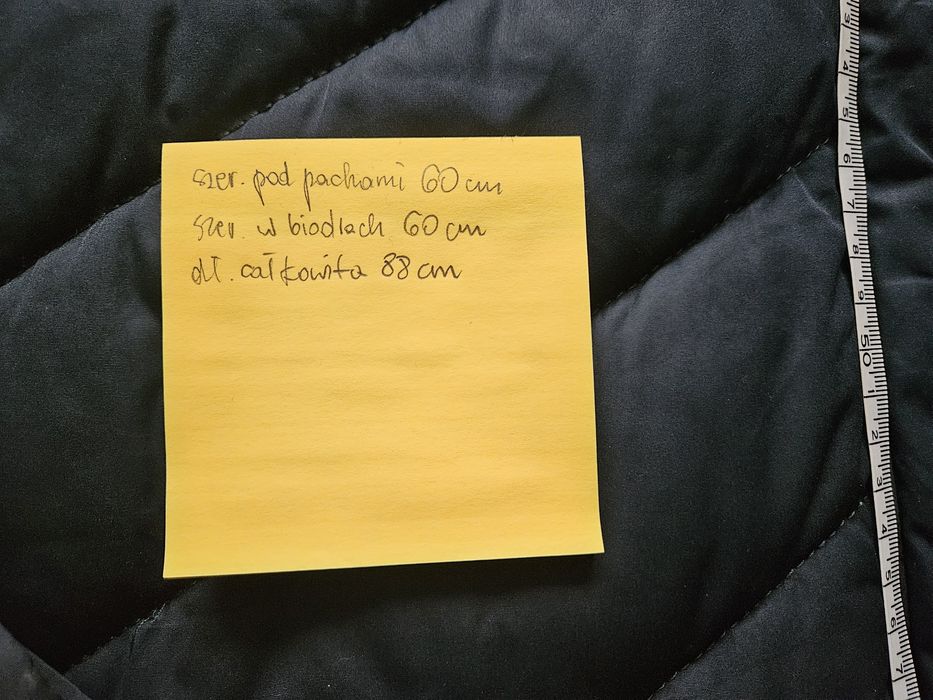 szer. pod pachami 60 cm
szer. w biodrach 60 cm
dł. całkowita 88 cm
3
4
5
6
7
8
9
50
1
2
3
4
5
6
7